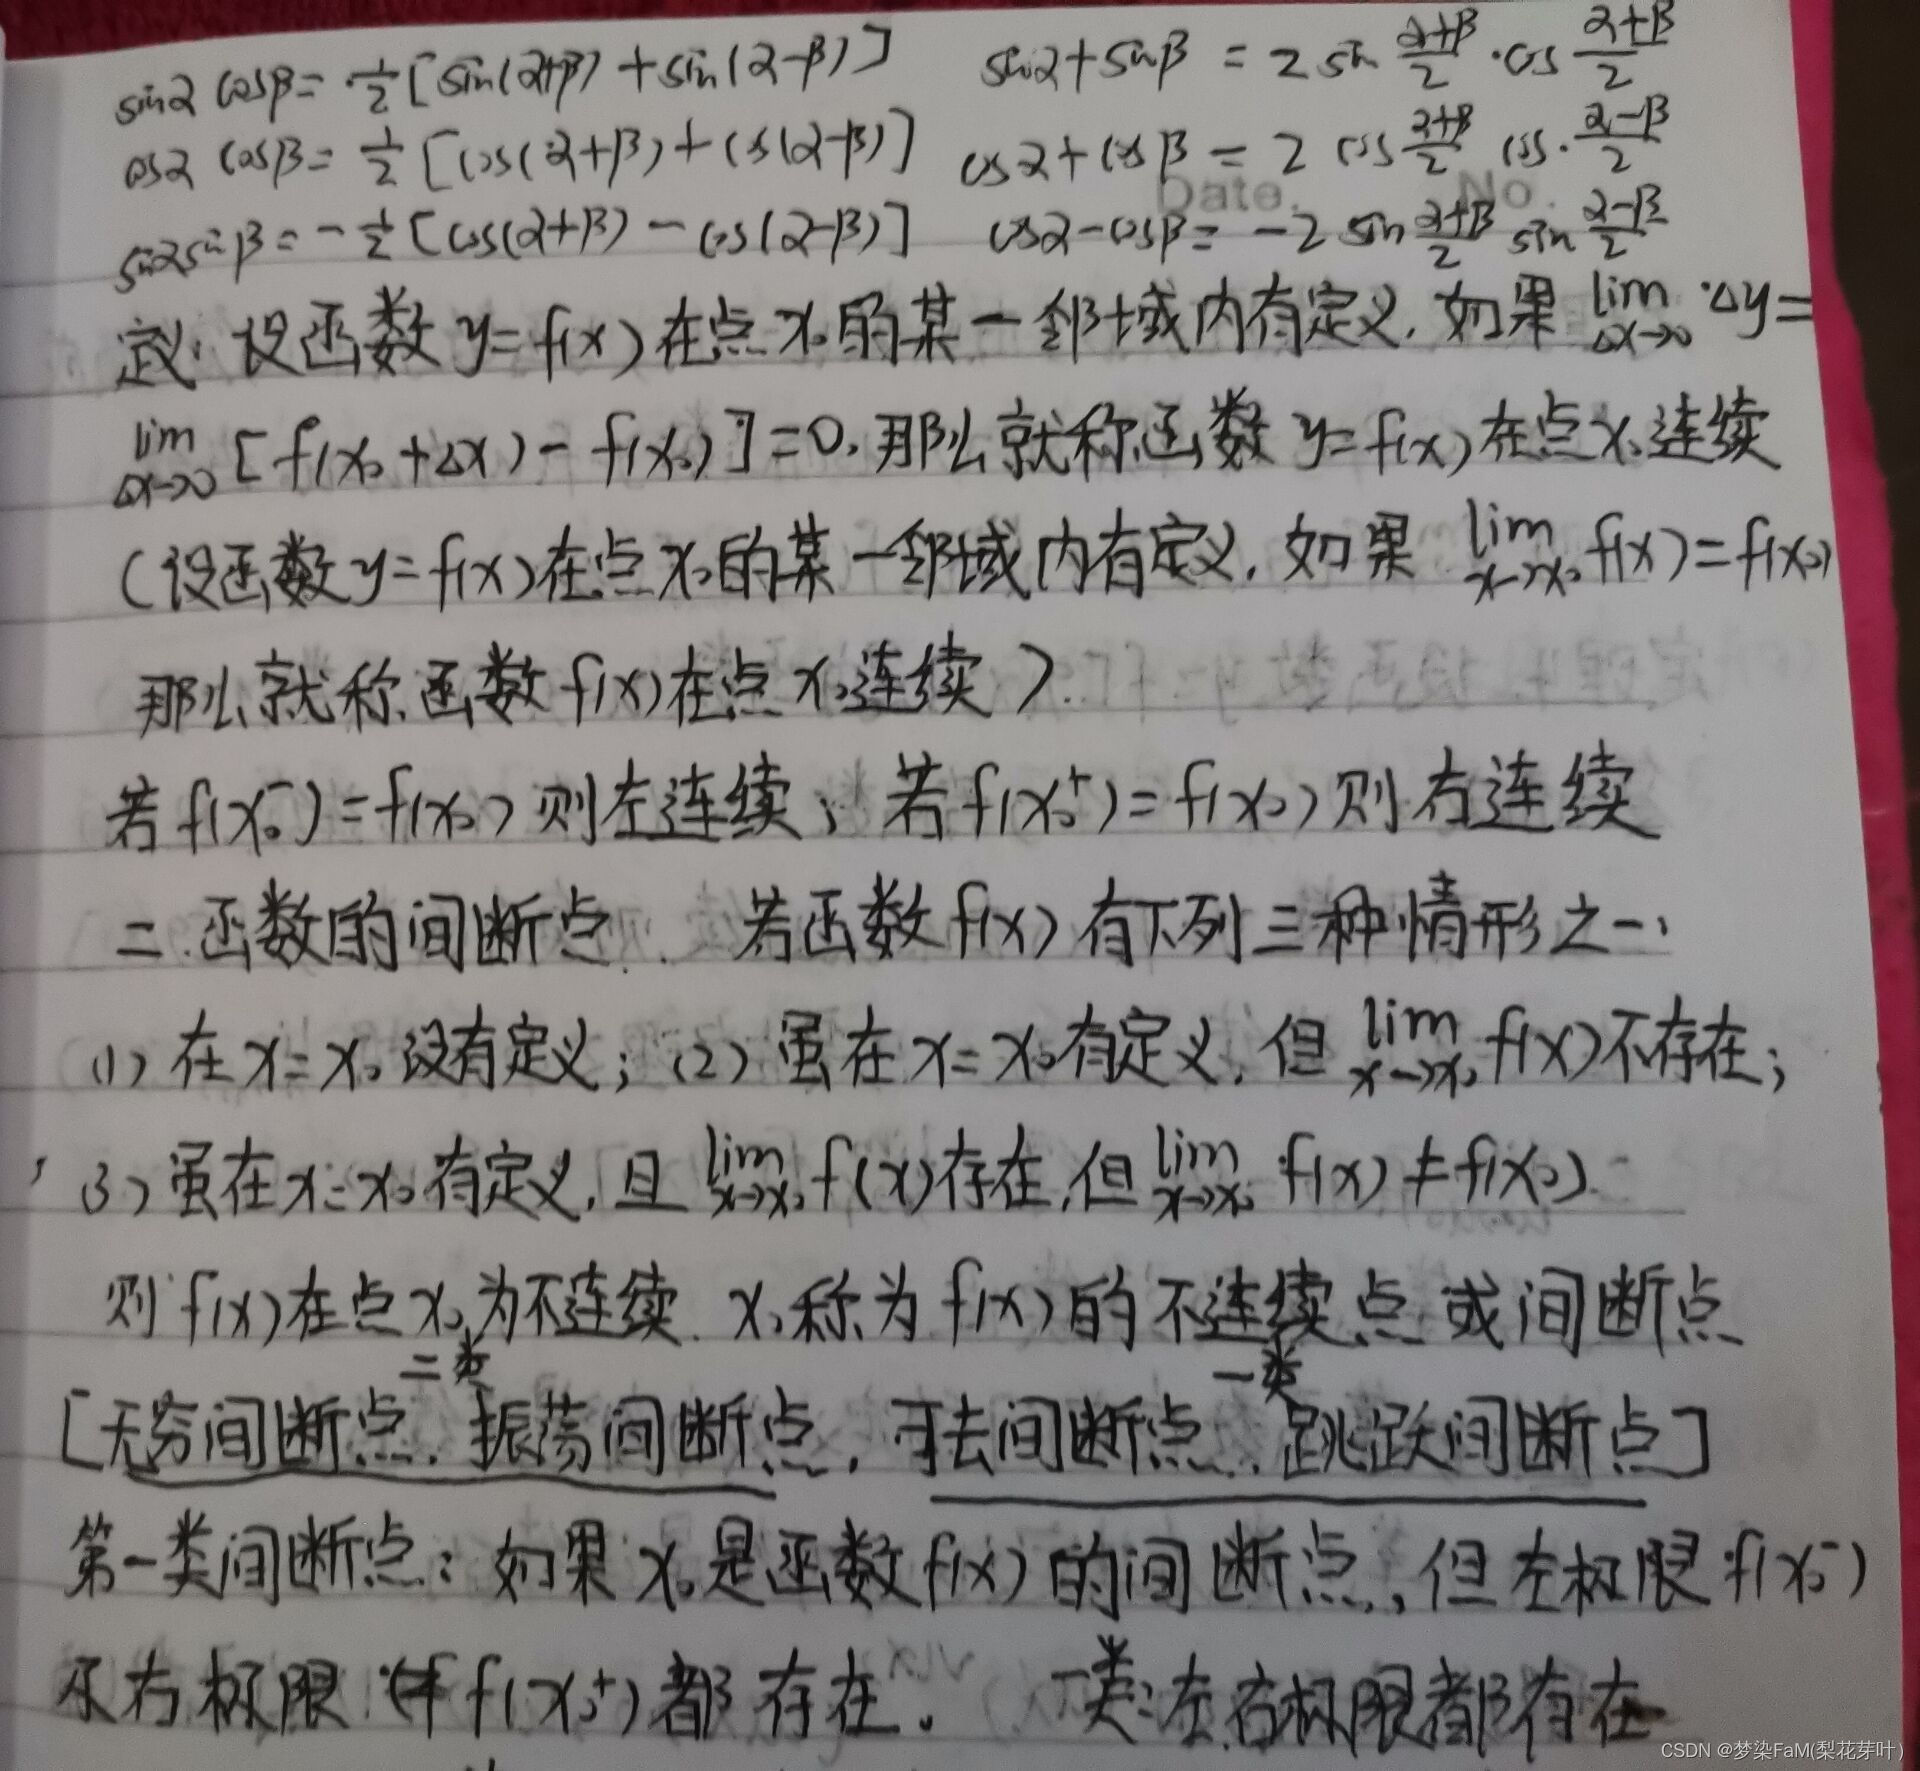 sinα cosβ = 1/2 [sin(α+β) + sin(α-β)]  sinα+sinβ = 2 sin (α+β)/2 · cos (α+β)/2
cosα cosβ = 1/2 [cos(α+β) + cos(α-β)]  cosα+cosβ = 2 cos (α+β)/2 cos · (α-β)/2
Date. No.
sinα sinβ = -1/2 [cos(α+β) - cos(α-β)]  cosα-cosβ = -2 sin (α+β)/2 sin (α-β)/2
定义: 设函数 y=f(x) 在点 x₀ 的某一邻域内有定义, 如果 lim Δx→0 Δy=
lim Δx→0 [f(x₀+Δx) - f(x₀)] = 0, 那么就称函数 y=f(x) 在点 x₀ 连续
(设函数 y=f(x) 在点 x₀ 的某一邻域内有定义, 如果 lim x→x₀ f(x) = f(x₀)
那么就称函数 f(x) 在点 x₀ 连续)
若 f(x₀⁻) = f(x₀) 则左连续; 若 f(x₀⁺) = f(x₀) 则右连续
二. 函数的间断点. 若函数 f(x) 有下列三种情形之一:
(1) 在 x=x₀ 没有定义; (2) 虽在 x=x₀ 有定义, 但 lim x→x₀ f(x) 不存在;
(3) 虽在 x=x₀ 有定义, 且 lim x→x₀ f(x) 存在, 但 lim x→x₀ f(x) ≠ f(x₀).
则 f(x) 在点 x₀ 为不连续. x₀ 称为 f(x) 的不连续点或间断点
二类 一类
[无穷间断点, 振荡间断点, 可去间断点, 跳跃间断点]
第一类间断点: 如果 x₀ 是函数 f(x) 的间断点, 但左极限 f(x₀⁻)
右极限 f(x₀⁺) 都存在. 一类: 左右极限都存在
CSDN @梦染FaM(梨花芽叶)